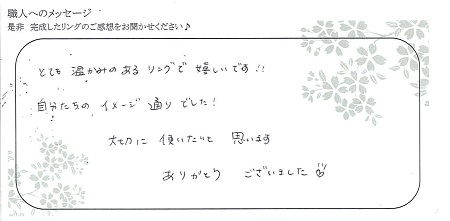 職人へのメッセージ
是非 完成したリングのご感想をお聞かせください♪
とても 温かみのある リングで 嬉しいです!!
自分たちの イメージ 通り でした!
大切に 使いたいと 思います
ありがとう ございました